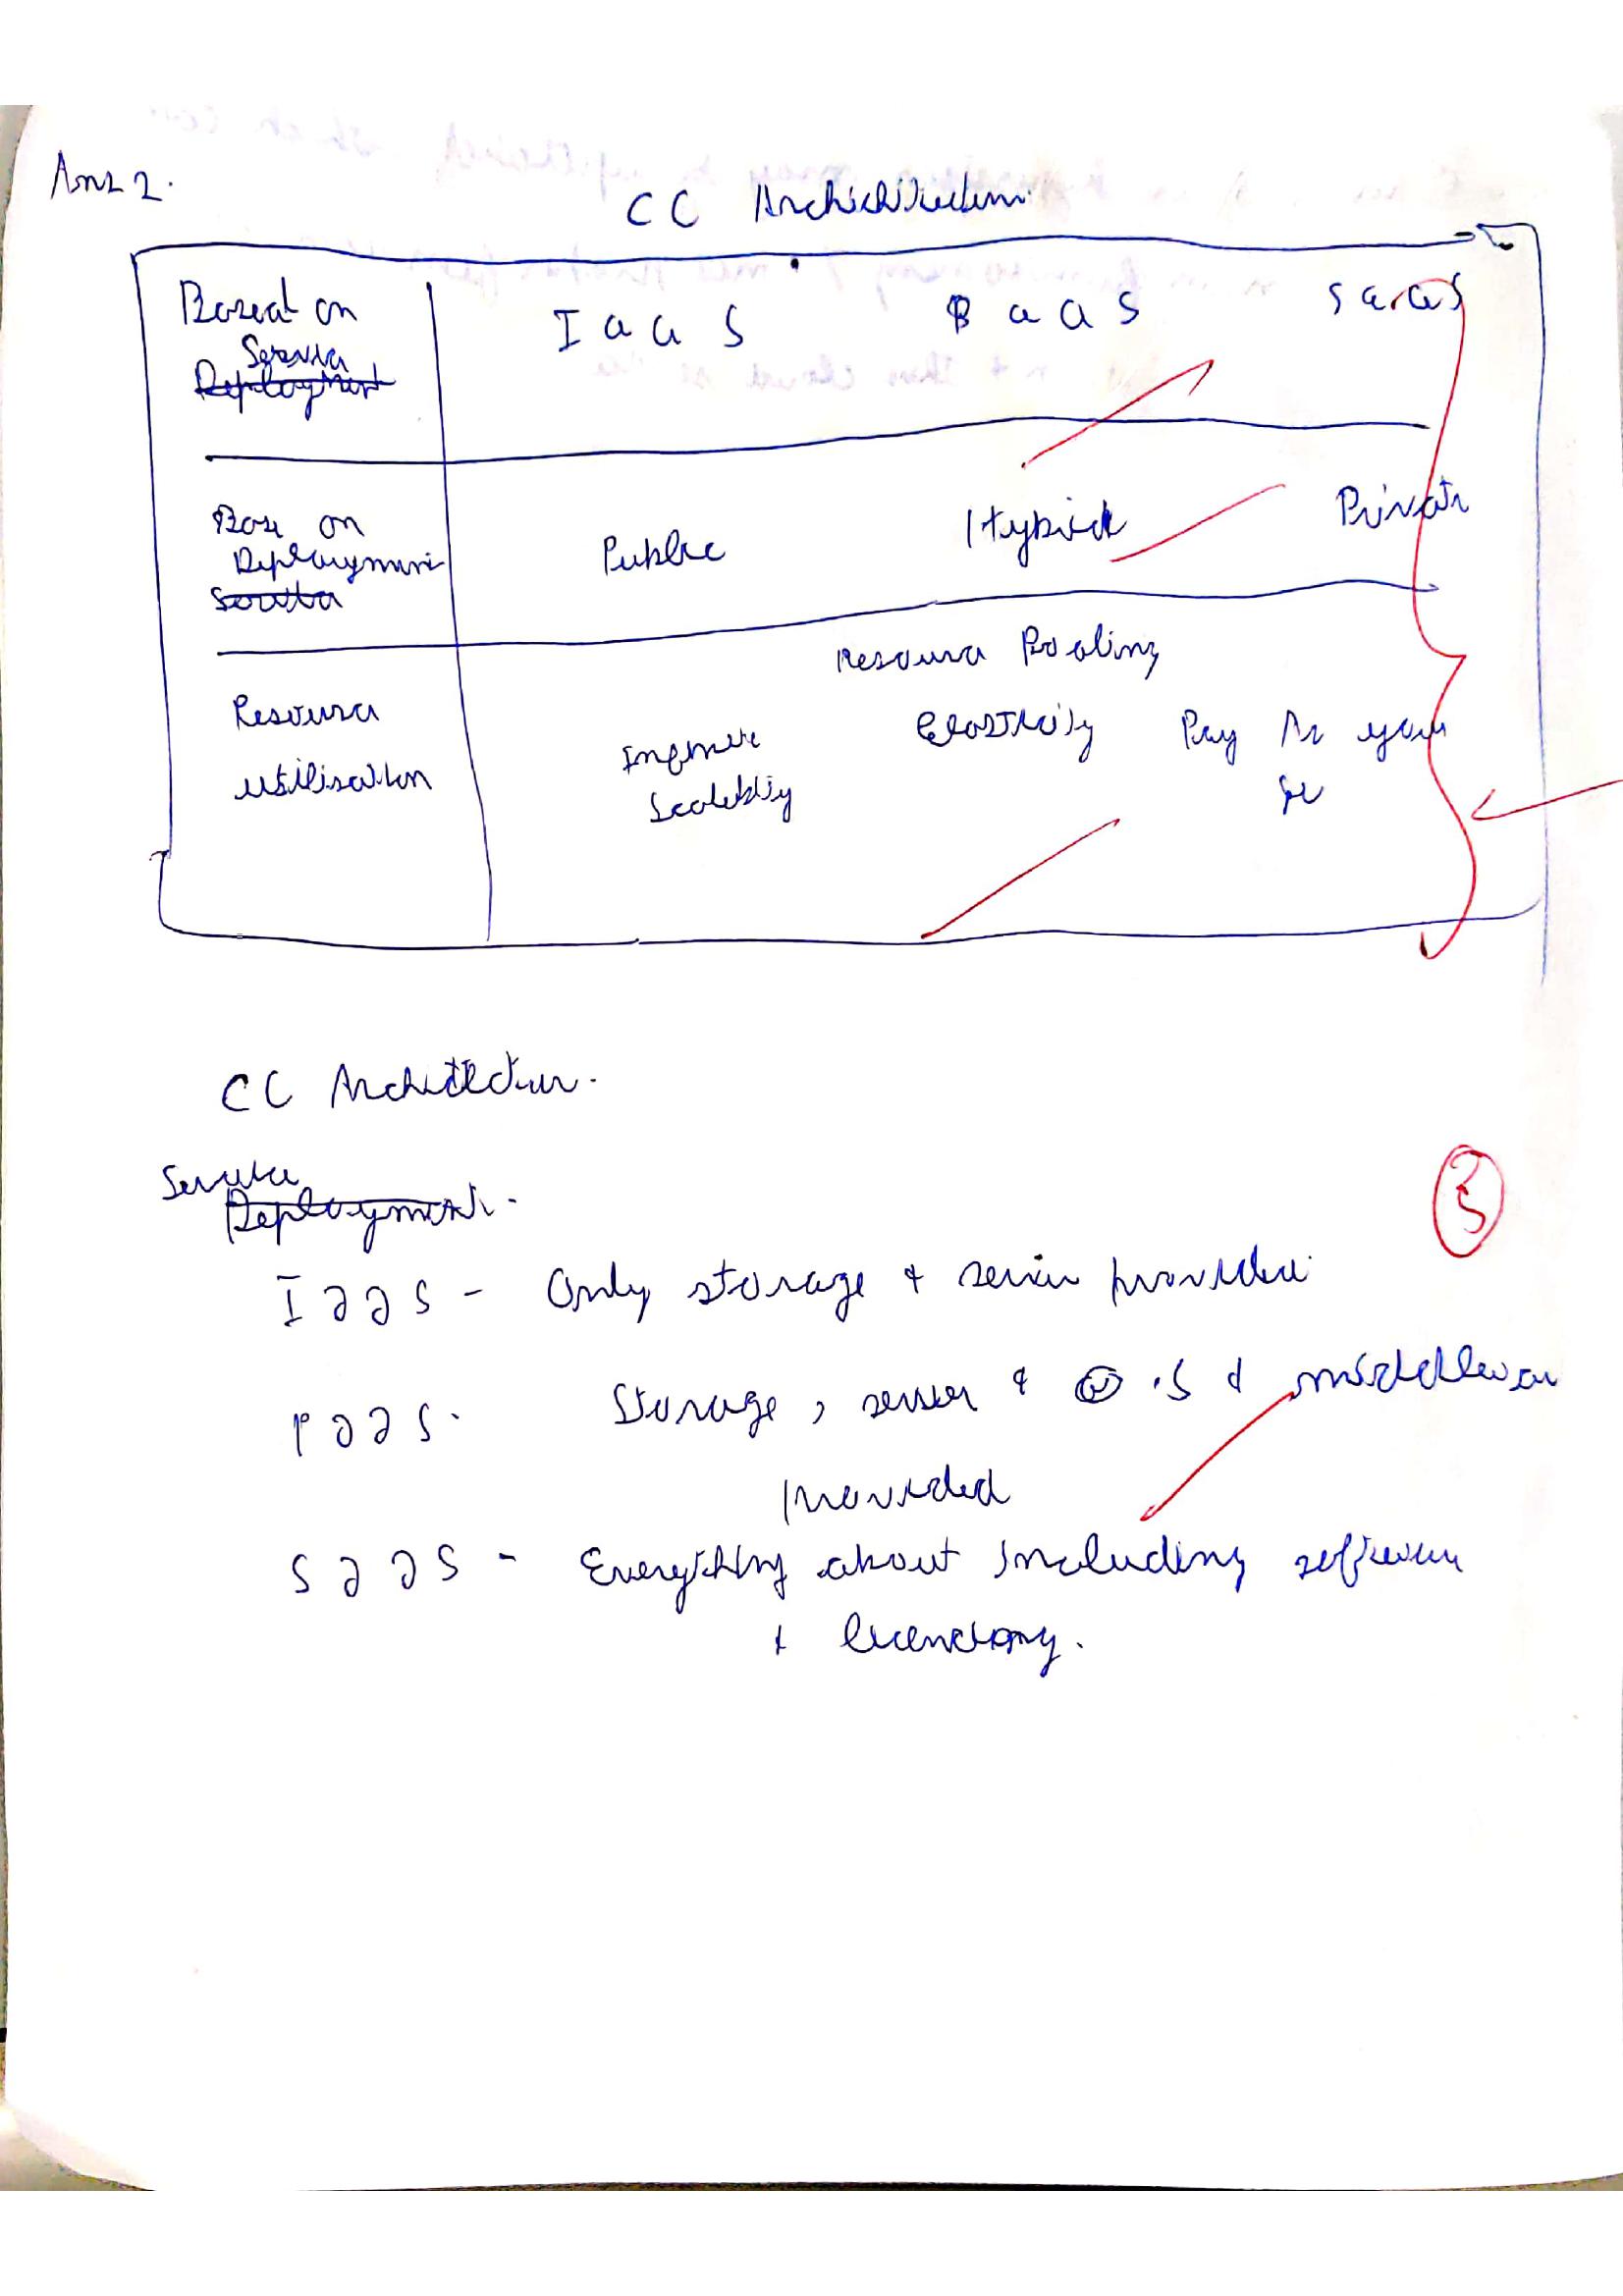 Ans 2.
CC Archichitecture
Based on
Service
Deployment
IaaS
PaaS
SaaS
Base on
Deployment
Service
Public
Hybrid
Private
Resource
utilisation
Resource Pooling
Infinite
Scalability
Elasticity
Pay As you
se
CC Architectur.
Service
Deployment.
IaaS - Only storage & server provided
PaaS. Storage, server & O.S & middlewar
provided
SaaS - Everything about including software
& licencing.
3